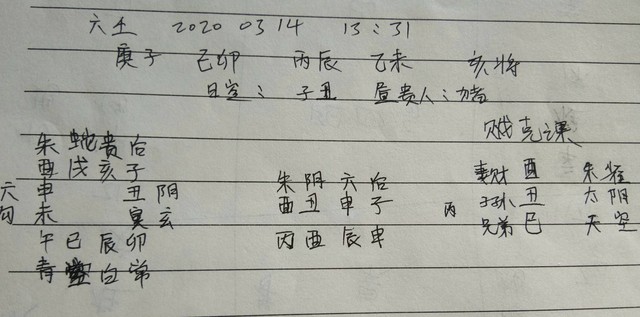 六壬 2020 03 14 13:31
庚子 己卯 丙辰 乙未 亥将
日空: 子丑 昼贵人:猪
贼克课
朱 蛇 贵 后
酉 戌 亥 子
六 申 丑 阴
勾 未 寅 玄
午 巳 辰 卯
青 空 白 常
朱 阴 六 后
酉 丑 申 子
丙 酉 辰 申
妻财 酉 朱雀
丙 子孙 丑 太阴
兄弟 巳 天空